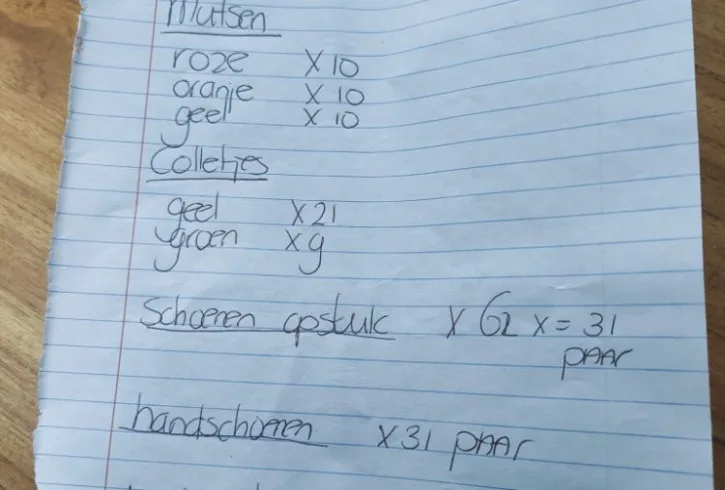 Mutsen
roze x10
oranje x10
geel x10
Colletjes
geel x21
groen x9
Schoenen opstuk x 62 x = 31
paar
handschoenen x31 paar